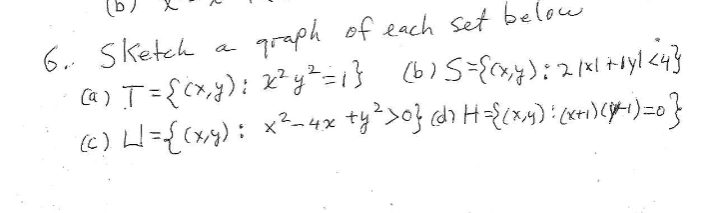 (b) x
6. Sketch a graph of each set below
(a) T={(x,y): x²y²=1} (b) S={(x,y): 2|x|+|y|<4}
(c) U={(x,y): x²-4x+y²>0} (d) H={(x,y):(x+1)(y-1)=0}